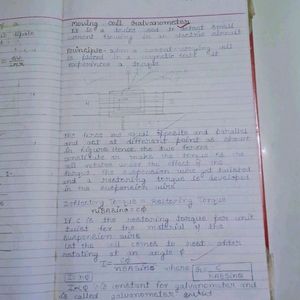 Moving coil Galvanometer
It is a device used to detect small
current flowing in an electric circuit
Principle - when a current carrying coil
is placed in a magnetic field it
experiences a torque
The force are equal opposite and parallel
and act at different point as shown
in figure Hence the two forces
constitute or make the torque is the
coil rotates under the effect of the
torque the suspension wire get twisted
and a restoring torque is developed
in the suspension wire
Deflecting Torque = Restoring Torque
NIBA sinα = Cφ
If C is the restoring torque per unit
twist for the material of the
suspension wire
let the coil comes to rest after
rotating at an angle φ
I = Cφ / NAB sinα where G = C / NAB sinα
I = Gφ
I∝φ G is constant for galvanometer and
is called galvanometer